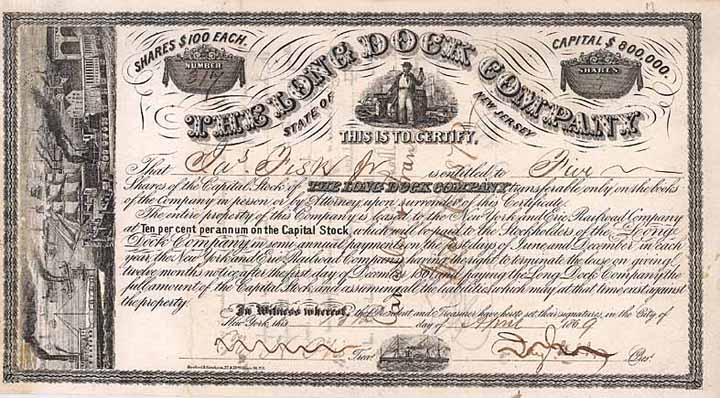 SHARES $100 EACH.
CAPITAL $800,000.
NUMBER
SHARES
THE LONG DOCK COMPANY
STATE OF NEW JERSEY
THIS IS TO CERTIFY,
That Jas Fisk Jr is entitled to Five
Shares of the Capital Stock of THE LONG DOCK COMPANY transferable only on the books
of the Company in person or by Attorney, upon surrender of this Certificate.
The entire property of this Company is leased to the New York and Erie Railroad Company
at Ten per cent per annum on the Capital Stock, which will be paid to the Stockholders of the Long
Dock Company in semi annual payments on the first days of June and December in each
year, the New York and Erie Railroad Company having the right to terminate the lease on giving
twelve months notice after the first day of December 186 paying the Long Dock Company the
full amount of the Capital Stock and assuming all the liabilities which may at that time exist against
the property.
In Witness whereof, the President and Treasurer have hereto set their signatures, in the City of
New York, this day of April 1869
Trear.
Jay Gould Pres.